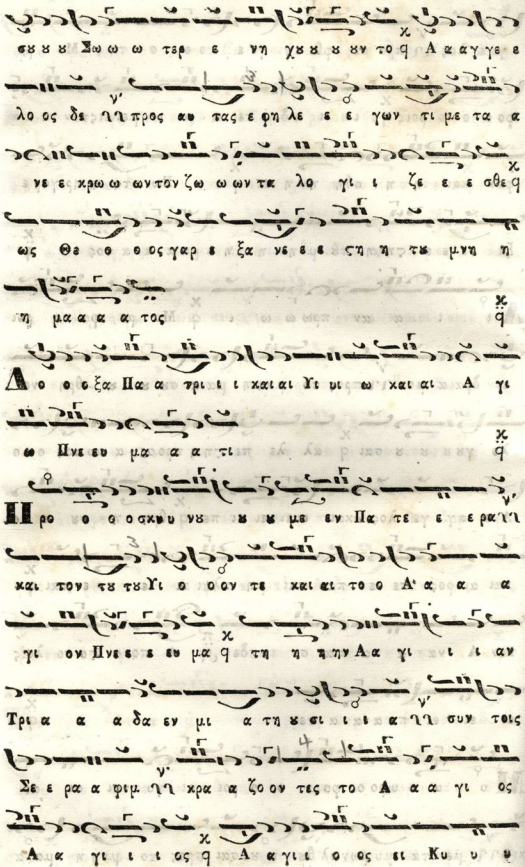 σου ου ου Σω ω ω τερ ε νη χου ου ου ουν το Α α αγ γε ε
λο ος δε προς αυ τας ε φη λε ε ε γων τι με τα α
νε ε κρω ω ων τον ζω ω ων τα λο γι ι ζε ε ε σθε
ως Θε ο ο ος γαρ ε ξα νε ε ε στη η του μνη η
η μα α α α τος
Δο ο ο ξα Πα α τρι ι ι και αι Υι υι ω και αι Α γι
ω Πνε ευ μα α α τι
Προ ο ο ο σκυυ νου ου ου ου με εν Πα τε ε ε ρα
και τον του του Υι ο ο ον τε και αι το ο Α α α α
γι ον Πνε ε ε ευ μα τη η την Α α γι ι ι αν
Τρι α α α δα εν μι α τη ου σι ι ι α συν τοις
Σε ε ρα α φιμ κρα α ζο ον τες το Α α α γι ος
Α α α γι ι ι ος Α α γι ο ο ος ει Κυ υ υ